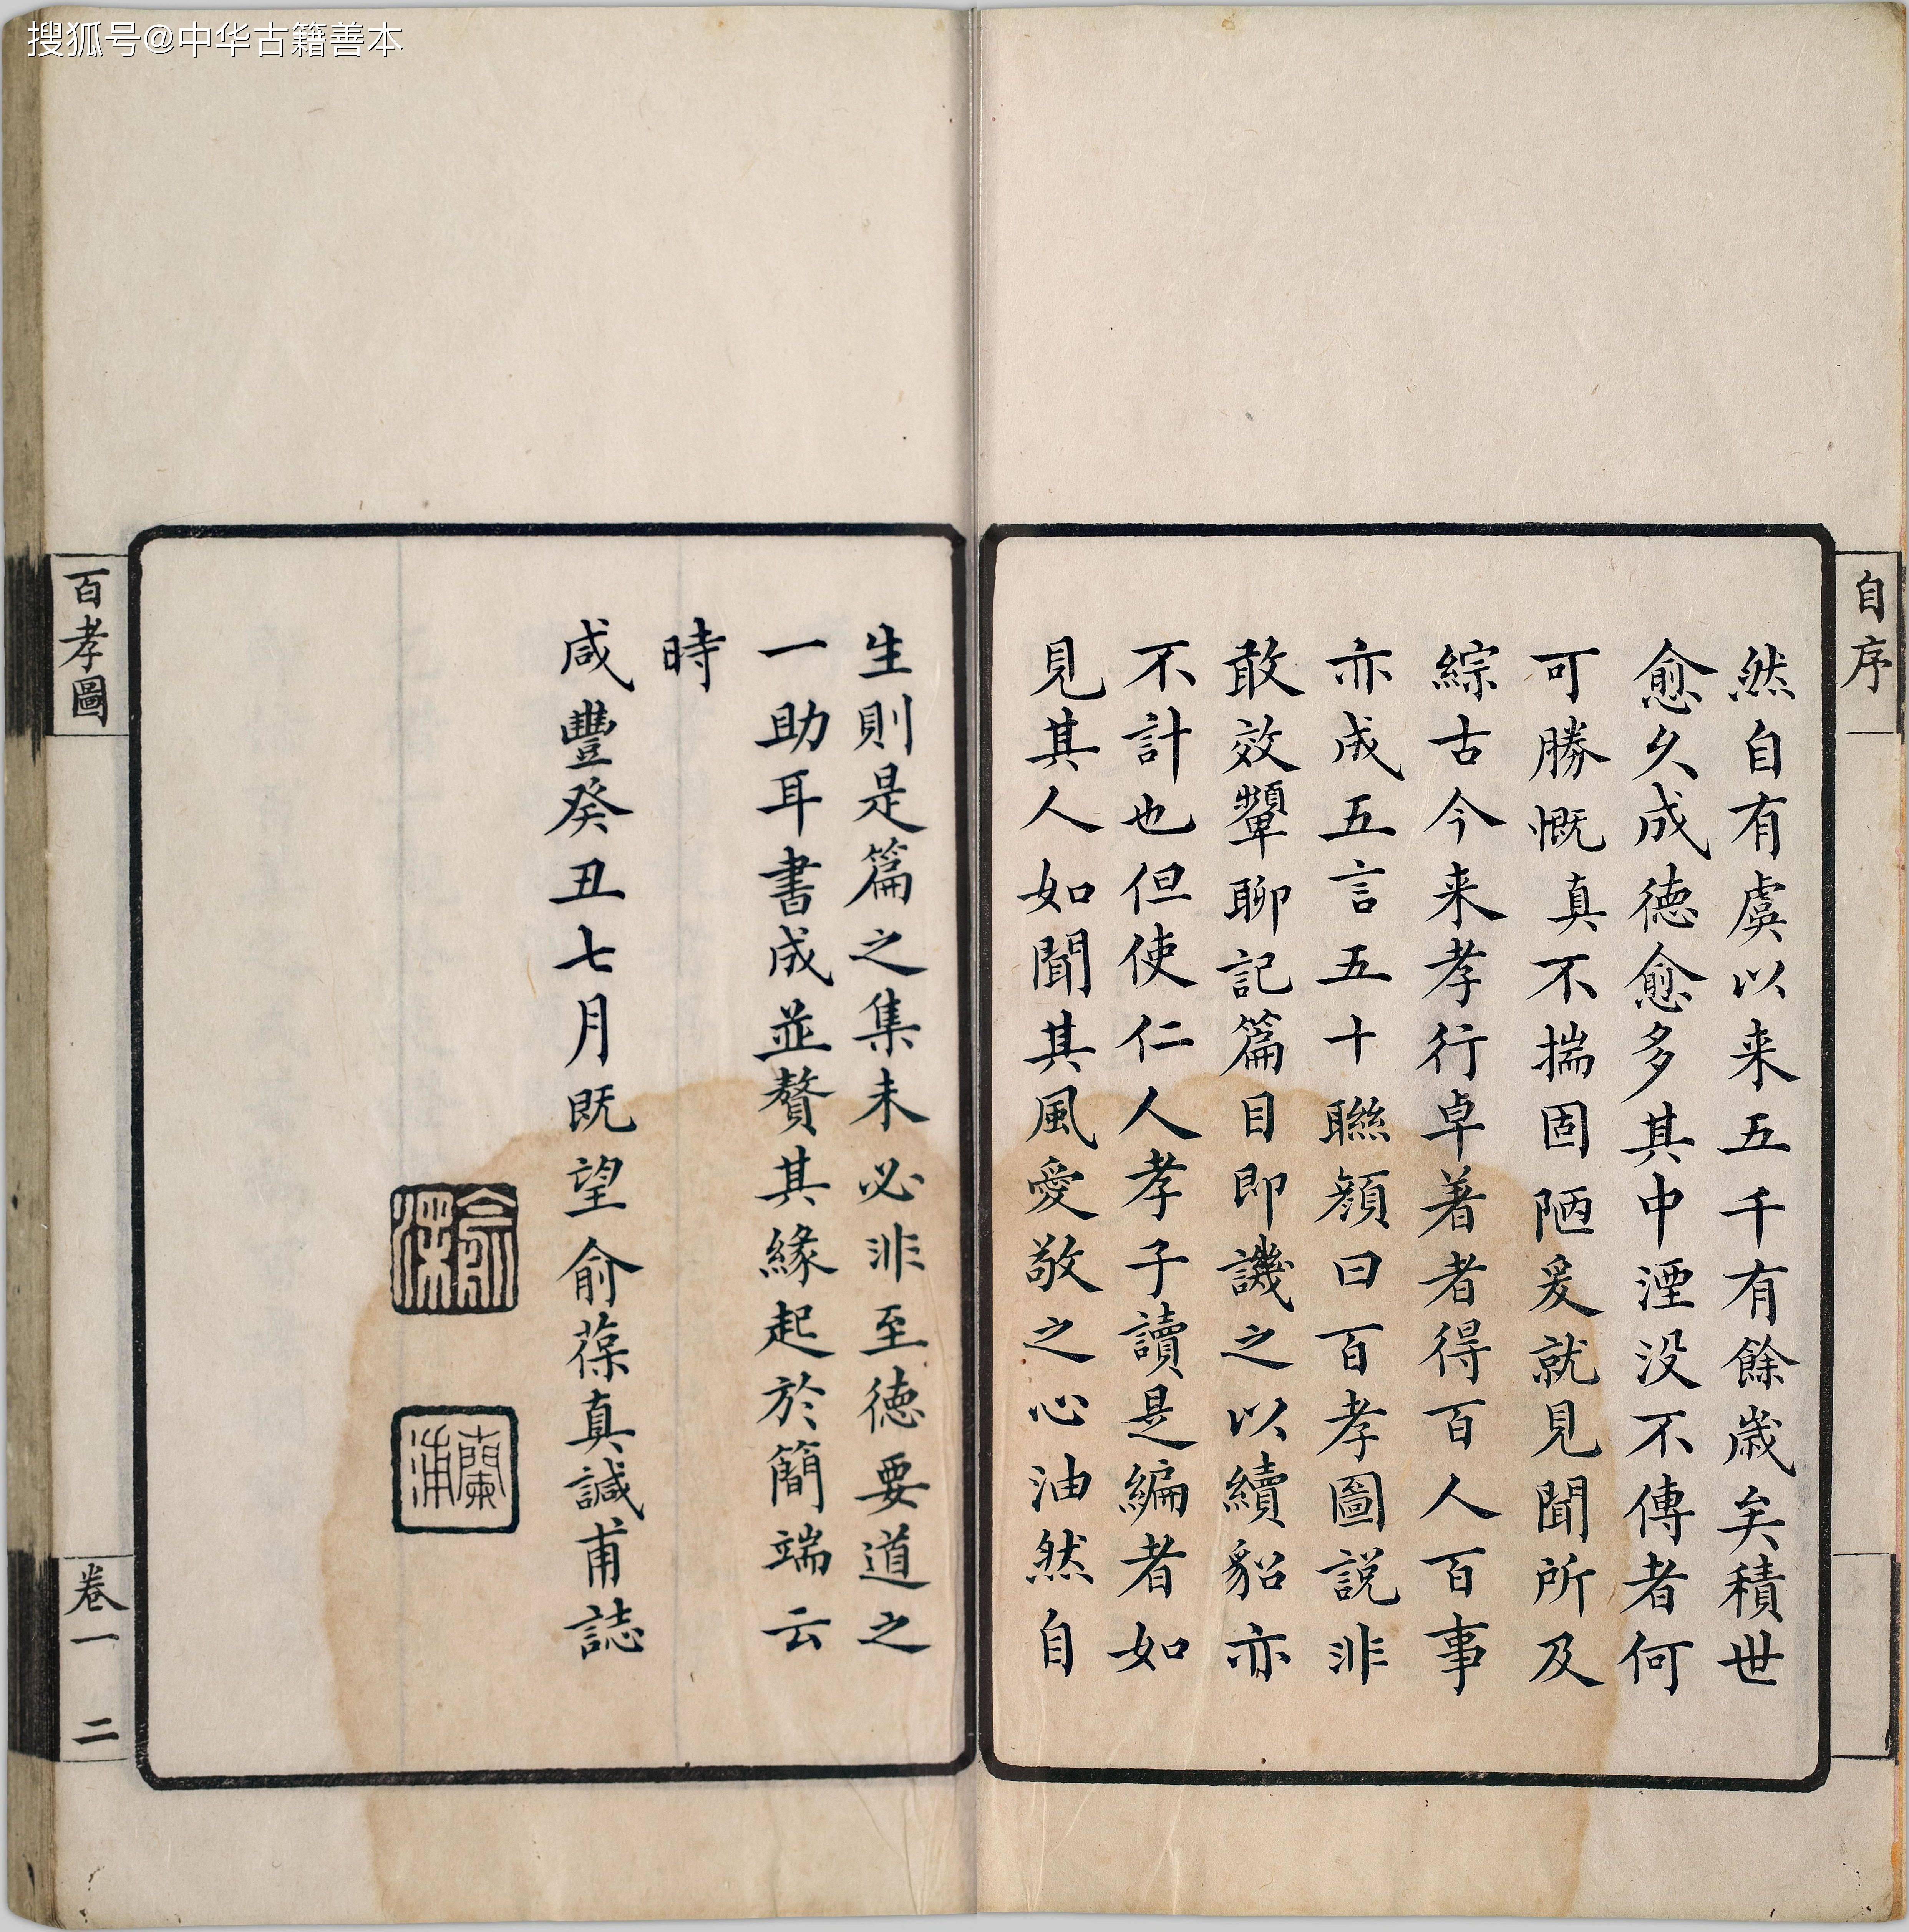 搜狐号@中华古籍善本
自序
一
然自有虞以来五千有餘歲矣積世
愈久成德愈多其中湮没不傳者何
可勝慨真不揣固陋爰就見聞所及
綜古今来孝行卓著者得百人百事
亦成五言五十聯顏曰百孝圖說非
敢效顰聊記篇目即譏之以續貂亦
不計也但使仁人孝子讀是編者如
見其人如聞其風愛敬之心油然自
生則是篇之集未必非至德要道之
一助耳書成並贅其緣起於簡端云
時
咸豐癸丑七月既望俞葆真諴甫誌
蘭浦
百孝圖
卷一
二